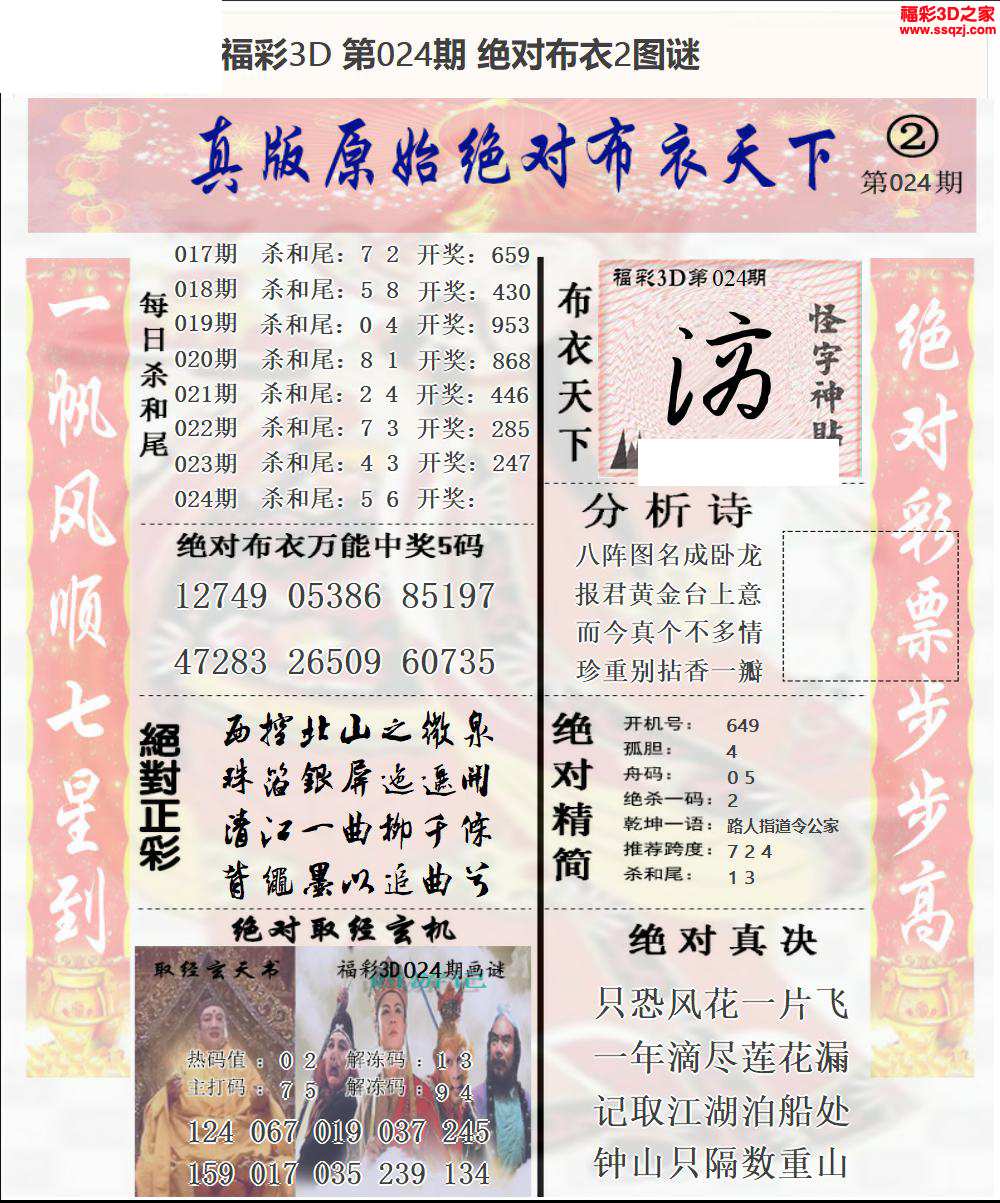 福彩3D之家
www.ssqzj.com
福彩3D 第024期 绝对布衣2图谜
真版原始绝对布衣天下
②
第024期
一帆风顺七星到
每日杀和尾
017期 杀和尾：7 2 开奖：659
018期 杀和尾：5 8 开奖：430
019期 杀和尾：0 4 开奖：953
020期 杀和尾：8 1 开奖：868
021期 杀和尾：2 4 开奖：446
022期 杀和尾：7 3 开奖：285
023期 杀和尾：4 3 开奖：247
024期 杀和尾：5 6 开奖：
绝对布衣万能中奖5码
12749 05386 85197
47283 26509 60735
絕對正彩
西控北山之微泉
珠箔銀屏迤邐開
清江一曲柳千條
背繩墨以追曲兮
绝对取经玄机
取经玄天书
福彩3D024期画谜
热码值：0 2 解冻码：1 3
主打码：7 5 解冻码：9 4
124 067 019 037 245
159 017 035 239 134
布衣天下
福彩3D第024期
怪字神贴
分析诗
八阵图名成卧龙
报君黄金台上意
而今真个不多情
珍重别拈香一瓣
绝对精简
开机号：649
孤胆：4
舟码：0 5
绝杀一码：2
乾坤一语：路人指道令公家
推荐跨度：7 2 4
杀和尾：1 3
绝对真决
只恐风花一片飞
一年滴尽莲花漏
记取江湖泊船处
钟山只隔数重山
绝对彩票步步高